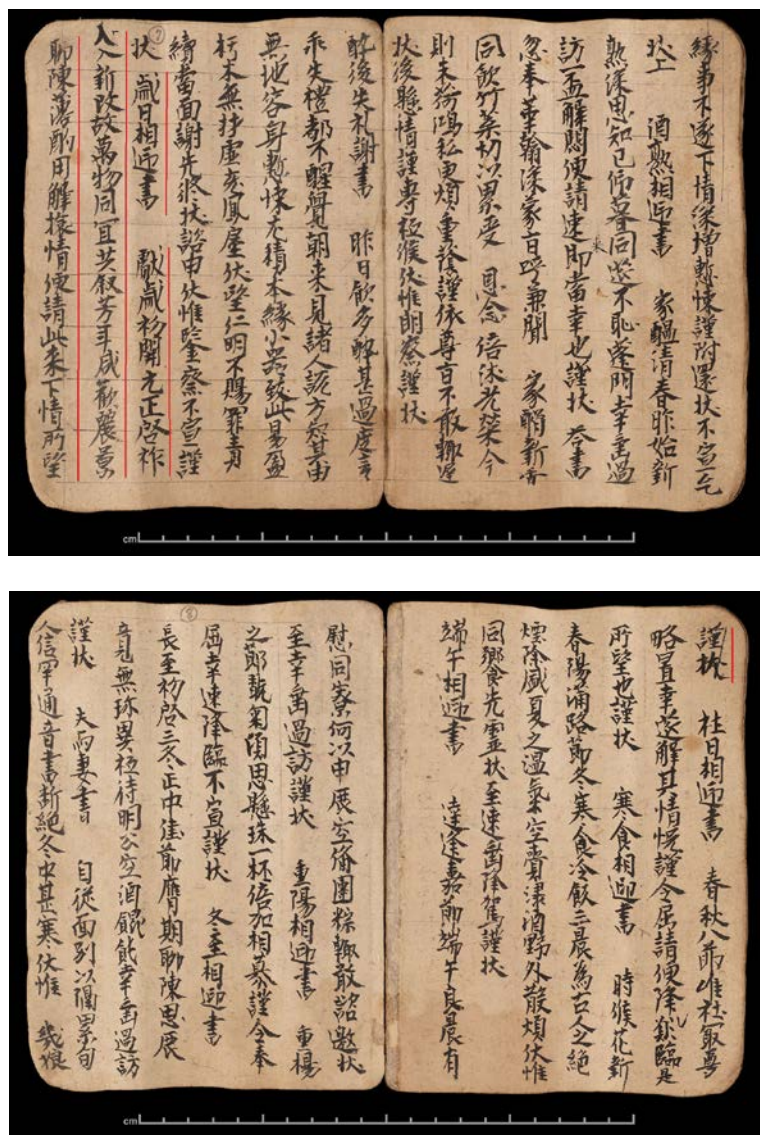 緣事不遂下情深增慙悚謹附還狀不宣乞
狀 酒熟相迎書 家醞清春昨始新
熟深思知己仰暮同歡不恥蓬門幸垂過
訪一盃解悶便請速來即當幸也謹狀 答書
忽奉華翰深蒙言呼兼聞 家醞新香
同飲竹葉切以累受 恩念倍沐光榮今
則未 鴻私更煩重 謹依尊旨不敢輒遲
狀後懸情謹專祗候伏惟朗察謹狀
醉後失礼謝書 昨日飲多醉甚過度言
乖失禮都不醒覺朝來見諸人說方知其由
無地容身慙悚尤積本緣小器致此易盈
伏望仁明不賜罪責
續當面謝先狀諮申伏惟鑒察不宣謹
狀 歲日相迎書 獻歲初開元正啓祚
入新改故萬物同宜共叙芳年咸歡麗景
聊陳薄酌用解 情便請此來下情所望
謹狀 社日相迎書 春秋八節唯社冣尊
略置幸歡解其情怳謹令屈請便降 臨是
所望也謹狀 寒食相迎書 時候花新
春陽滿路節冬寒食冷飲三晨為古人之絕
煙除盛夏之溫氣空賣淥酒野外散煩伏惟
同饗先靈狀至速垂降駕謹狀
端午相迎書 喜節端午良晨有
慰同寮何以申展空俻團粽輒敢諮邀狀
至幸垂過訪謹狀 重陽相迎書 重陽
之節 菊 思懸珠一杯倍加相慕謹令奉
屈幸速降臨不宣謹狀 冬至相迎書
長至初啓三冬正中佳節膺期聊陳思展
音無珎異祗待明公空酒餛飩幸垂過訪
謹狀 夫与妻書 自從面別以隔累旬
人信罕通音書斷絕冬中甚寒伏惟 幾娘